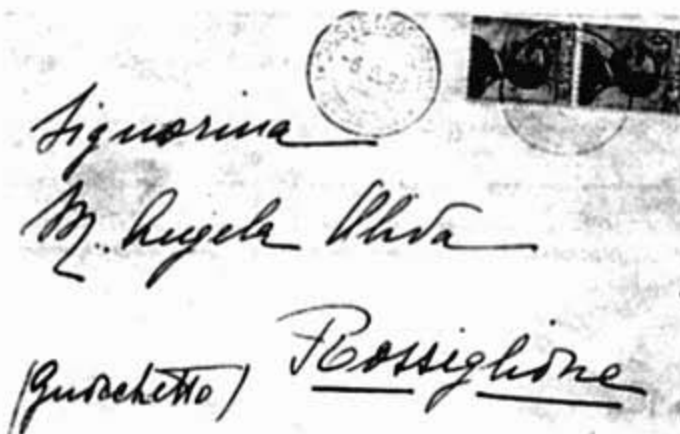 Signorina
M. Angela Oliva
Rossiglione
(Guiochetto)